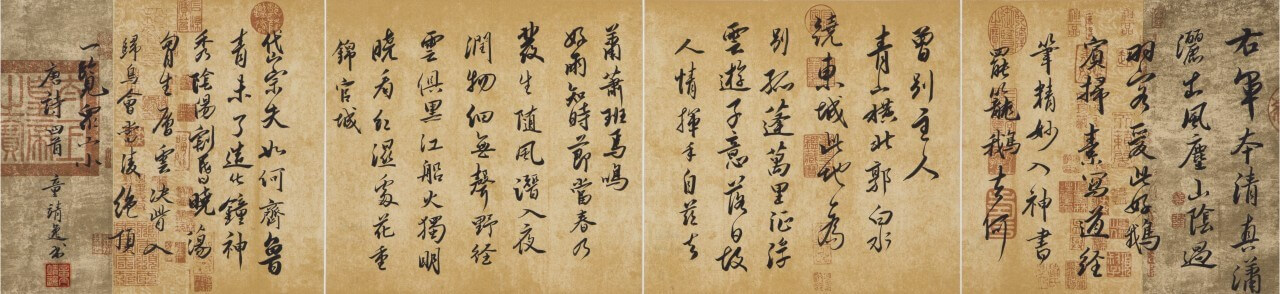 右軍本清真瀟
灑出風塵山陰過
羽客愛此好鵝
賓掃素寫道經
筆精妙入神書
罷籠鵝去何
曾別主人
青山橫北郭白水
繞東城此地一為
別孤蓬萬里征浮
雲遊子意落日故
人情揮手自茲去
蕭蕭班馬鳴
好雨知時節當春乃
發生隨風潛入夜
潤物細無聲野徑
雲俱黑江船火獨明
曉看紅濕處花重
錦官城
岱宗夫如何齊魯
青未了造化鐘神
秀陰陽割昏曉蕩
胸生層雲決眥入
歸鳥會當凌絕頂
一覽眾山小
唐詩四首
章靖書